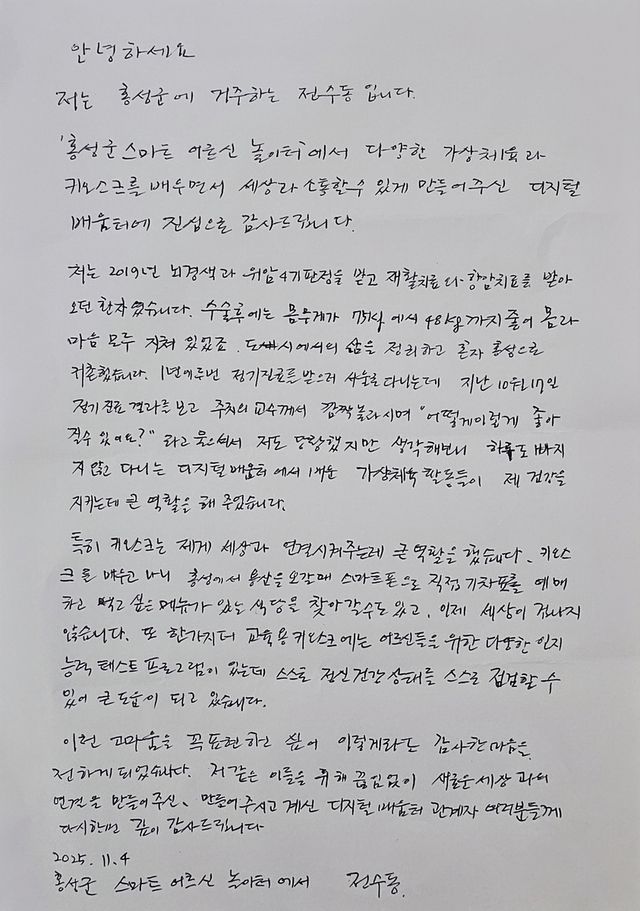 안녕하세요
저는 홍성군에 거주하는 전수동입니다.
'홍성군 스마트 어르신 놀이터'에서 다양한 가상체육과
키오스크를 배우면서 세상과 소통할 수 있게 만들어주신 디지털
배움터에 진심으로 감사드립니다.
저는 2019년 뇌경색과 위암4기판정을 받고 재활치료와 항암치료를 받아
오던 환자였습니다. 수술후에는 몸무게가 75kg에서 48kg까지 줄어 몸과
마음 모두 지쳐 있었죠. 도시에서의 삶을 정리하고 혼자 홍성으로
귀촌했습니다. 1년에 두번 정기진료를 받으러 서울로 다니는데 지난 10월17일
정기진료 결과를 보고 주치의 교수께서 깜짝 놀라시며 "어떻게 이렇게 좋아
질 수 있어요?" 라고 물으셔서 저도 당황했지만 생각해보니 하루도 빠지
지 않고 다니는 디지털배움터에서 배운 가상체육 활동들이 제 건강을
지키는데 큰 역할을 해 주었습니다.
특히 키오스크는 제게 세상과 연결시켜주는데 큰 역할을 했습니다. 키오스
크를 배우고 나니 홍성에서 용산을 오갈때 스마트폰으로 직접 기차표를 예매
하고 먹고 싶은 메뉴가 있는 식당을 찾아갈 수도 있고, 이제 세상이 겁나지
않습니다. 또 한가지더 교육용 키오스크에는 어르신들을 위한 다양한 인지
능력 테스트 프로그램이 있는데 스스로 정신건강 상태를 스스로 점검할 수
있어 큰 도움이 되고 있습니다.
이런 고마움을 꼭 표현하고 싶어 이렇게라도 감사한 마음을
전하게 되었습니다. 저 같은 이들을 위해 끊임없이 새로운 세상과의
연결을 만들어주신, 만들어주시고 계신 디지털 배움터 관계자 여러분들께
다시한번 깊이 감사드립니다
2025. 11. 4
홍성군 스마트 어르신 놀이터에서 전수동.